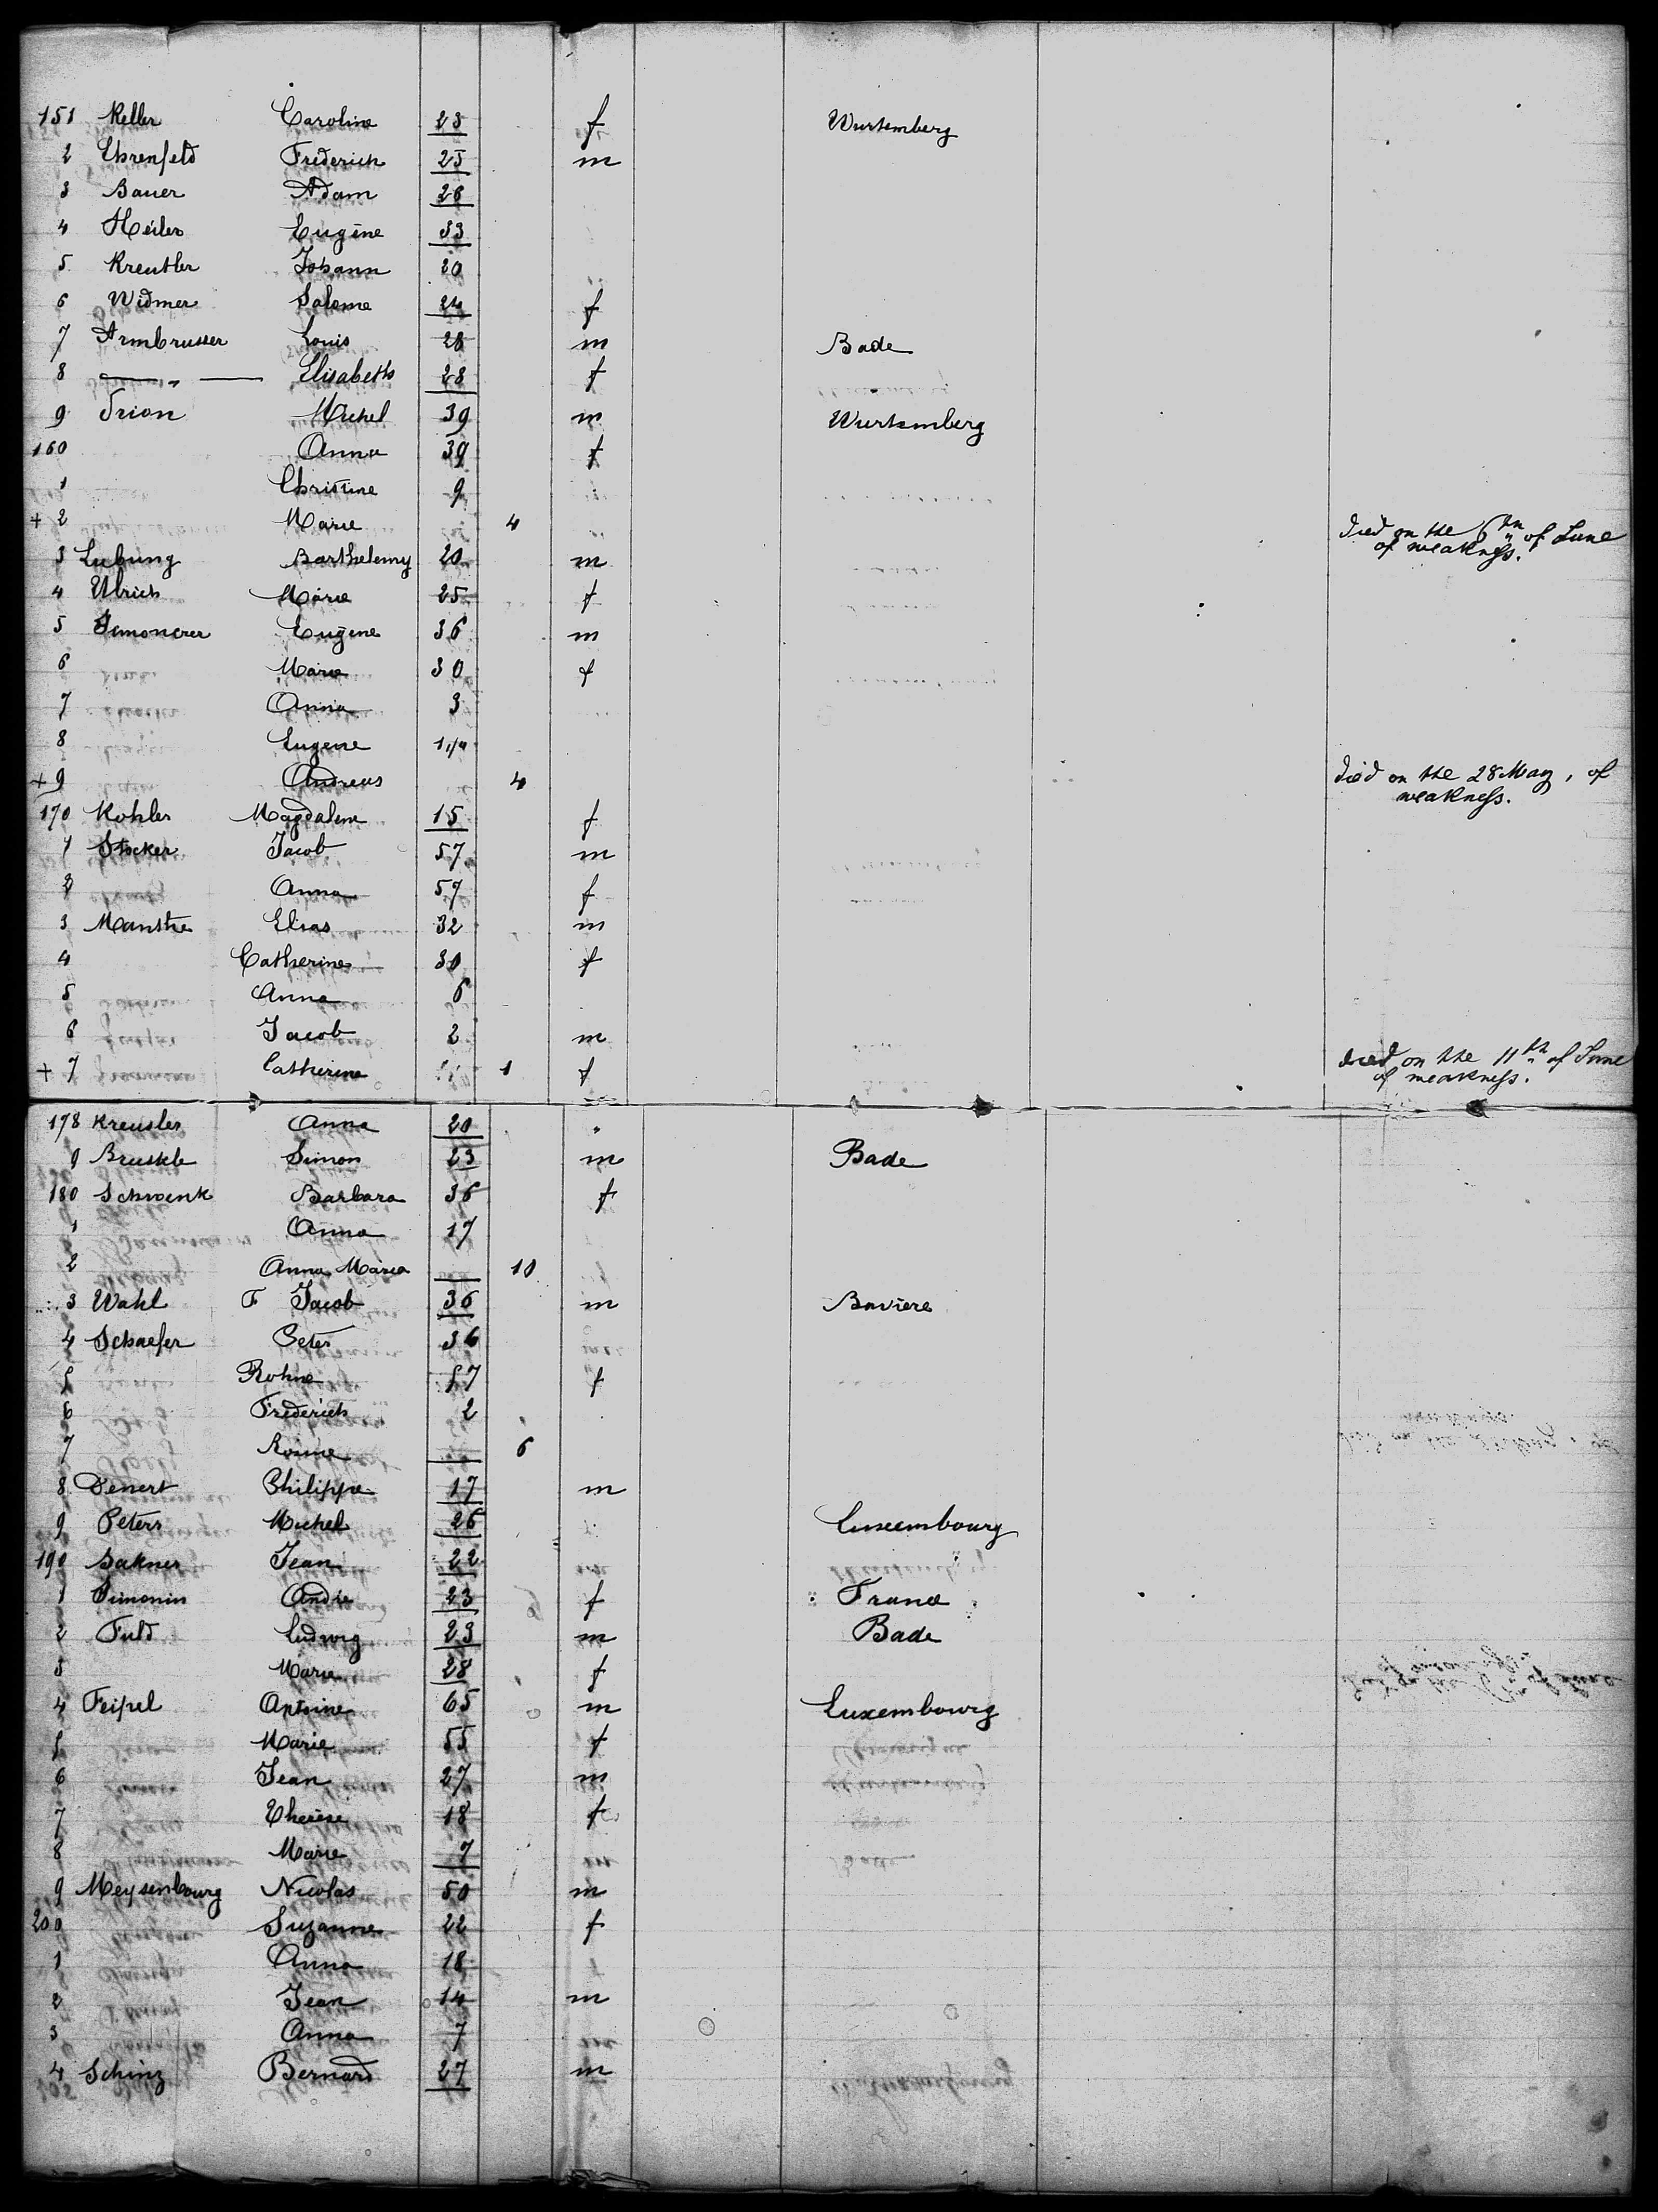 151 Keller Caroline 23 f Wurtemberg
2 Ehrenfeld Frederich 25 m
3 Bauer Adam 28
4 Heiler Eugène 33
5 Kreutler Johann 20
6 Widmer Salome 24 f
7 Armbruster Louis 28 m Bade
8 — " — Elisabeth 28 f
9 Trion Michel 39 m Wurtemberg
160 Anna 39 f
1 Christine 9
+ 2 Marie 4 died on the 6th of June
of weakness.
3 Lubung Barthelemy 20 m
4 Ulrich Marie 25 f
5 Simonerer Eugène 36 m
6 Marie 30 f
7 Anna 3
8 Eugene 1 1/4
+ 9 Andreas 4 died on the 28 May, of
weakness.
170 Kohler Magdalene 15 f
1 Stocker Jacob 57 m
2 Anna 57 f
3 Manthe Elias 32 m
4 Catherine 30 f
5 Anna 6
6 Jacob 2 m
+ 7 Catherine 1 f died on the 11th of June
of weakness.
178 Kreusler Anna 20 "
9 Bruskle Simon 23 m Bade
180 Schwenk Barbara 36 f
1 Anna 17
2 Anna Maria 10
3 Wahl F Jacob 36 m Baviere
4 Schaefer Peter 36
5 Rohne 57 f
6 Frederich 2
7 Rosine 6
8 Denert Philippe 17 m
9 Peters Michel 26 Luxembourg
190 Bakner Jean 22
1 Simonin Andre 23 f France
2 Fuld Ludwig 23 m Bade
3 Marie 28 f
4 Feipel Antoine 65 m Luxembourg
5 Marie 55 f
6 Jean 27 m
7 Therese 18 f
8 Marie 7
9 Meysenbourg Nicolas 50 m
200 Suzanne 22 f
1 Anna 18
2 Jean 14 m
3 Anna 7
4 Schinz Bernard 27 m